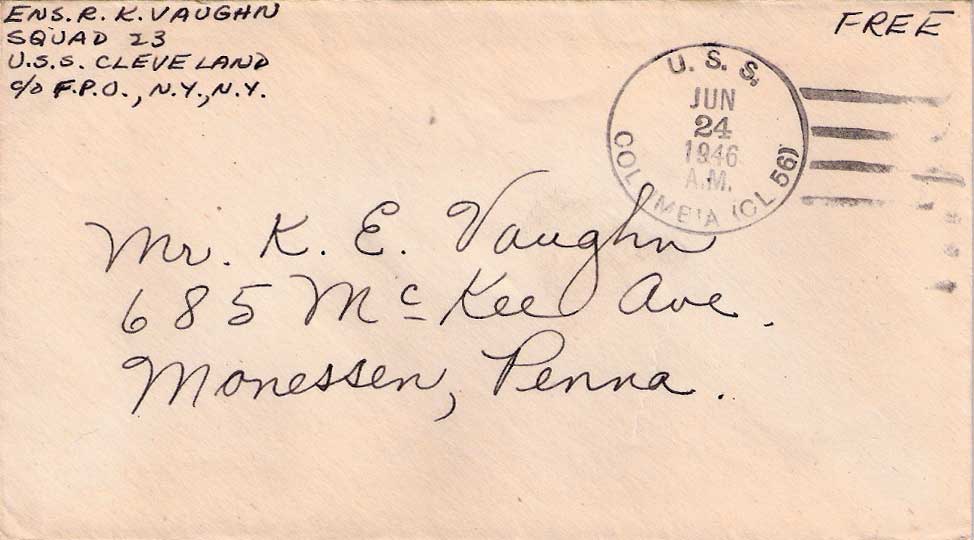 ENS. R. K. VAUGHN
SQUAD 23
U.S.S. CLEVELAND
c/o F.P.O., N.Y., N.Y.
FREE
U. S. S.
JUN
24
1946
A.M.
COLUMBIA (CL 56)
Mr. K. E. Vaughn
685 McKee Ave.
Monessen, Penna.